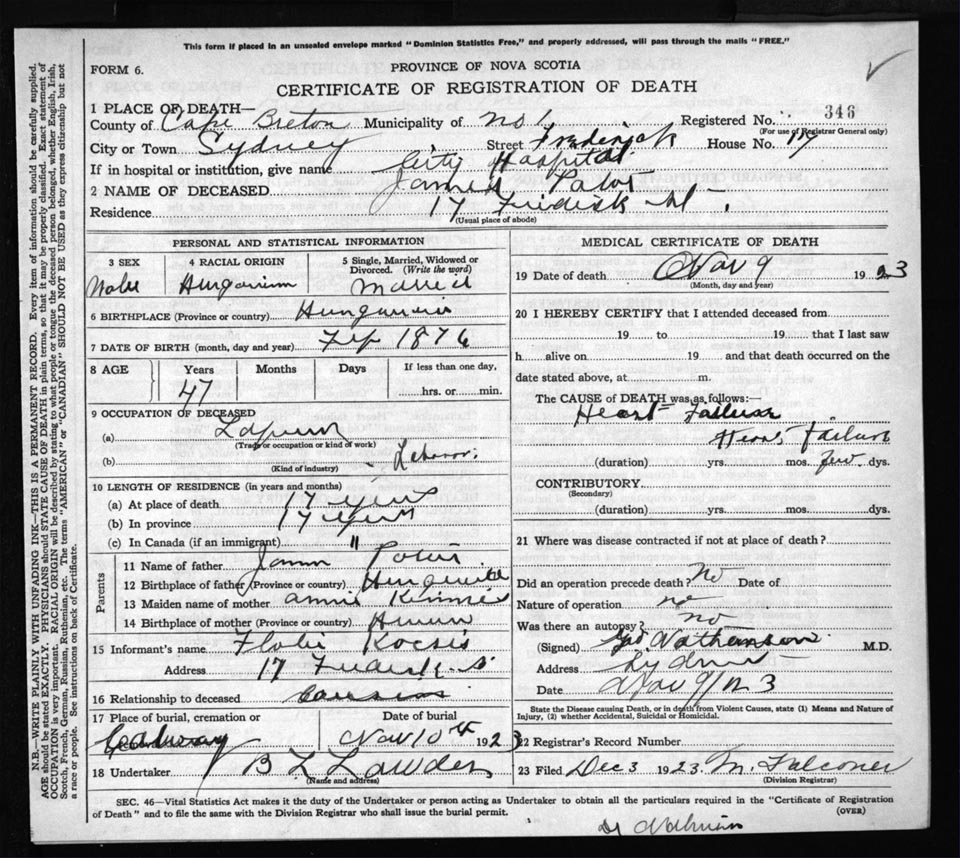 This form if placed in an unsealed envelope marked "Dominion Statistics Free," and properly addressed, will pass through the mails "FREE."
FORM 6. PROVINCE OF NOVA SCOTIA
CERTIFICATE OF REGISTRATION OF DEATH
1 PLACE OF DEATH—
County of Cape Breton Municipality of No 1 Registered No. 346
(For use of Registrar General only)
City or Town Sydney Street Frederick House No. 17
If in hospital or institution, give name City Hospital
2 NAME OF DECEASED James
Residence 17 St.
(Usual place of abode)
PERSONAL AND STATISTICAL INFORMATION
3 SEX 4 RACIAL ORIGIN 5 Single, Married, Widowed or Divorced. (Write the word)
6 BIRTHPLACE (Province or country)
7 DATE OF BIRTH (month, day and year) 1876
8 AGE Years Months Days If less than one day,
47 hrs. or min.
9 OCCUPATION OF DECEASED
(a)
(Trade or occupation or kind of work)
(b)
(Kind of industry)
10 LENGTH OF RESIDENCE (in years and months)
(a) At place of death 17 years
(b) In province 17 years
(c) In Canada (if an immigrant) "
Parents
11 Name of father
12 Birthplace of father (Province or country)
13 Maiden name of mother Annie
14 Birthplace of mother (Province or country)
15 Informant's name Kocsis
Address 17
16 Relationship to deceased
17 Place of burial, cremation or Date of burial
Nov 10th 1923
18 Undertaker B L Lawder
(Name and address)
MEDICAL CERTIFICATE OF DEATH
19 Date of death Nov 9 1923
(Month, day and year)
20 I HEREBY CERTIFY that I attended deceased from
19 to 19 that I last saw
h alive on 19 and that death occurred on the
date stated above, at m.
The CAUSE of DEATH was as follows:—
Heart Failuar
Heart Failure
(duration) yrs. mos. few dys.
CONTRIBUTORY
(Secondary)
(duration) yrs. mos. dys.
21 Where was disease contracted if not at place of death?
Did an operation precede death? No Date of
Nature of operation no
Was there an autopsy? no
(Signed) Nathanson M.D.
Address Sydney
Date Nov 9/23
State the Disease causing Death, or in death from Violent Causes, state (1) Means and Nature of Injury, (2) whether Accidental, Suicidal or Homicidal.
22 Registrar's Record Number
23 Filed Dec 3 1923 M. Falconer
(Division Registrar)
SEC. 46—Vital Statistics Act makes it the duty of the Undertaker or person acting as Undertaker to obtain all the particulars required in the "Certificate of Registration
of Death" and to file the same with the Division Registrar who shall issue the burial permit. (OVER)
N.B.—WRITE PLAINLY WITH UNFADING INK—THIS IS A PERMANENT RECORD. Every item of information should be carefully supplied.
AGE should be stated EXACTLY. PHYSICIANS should STATE CAUSE OF DEATH in plain terms, so that it may be properly classified. Exact statement of
OCCUPATION is very important. RACIAL ORIGIN will be described by stating to what people or tongue the deceased person belonged, whether English, Irish,
Scotch, French, German, Russian, Ruthenian, etc. The terms "AMERICAN" or "CANADIAN" SHOULD NOT BE USED as they express citizenship but not
a race or people. See instructions on back of Certificate.